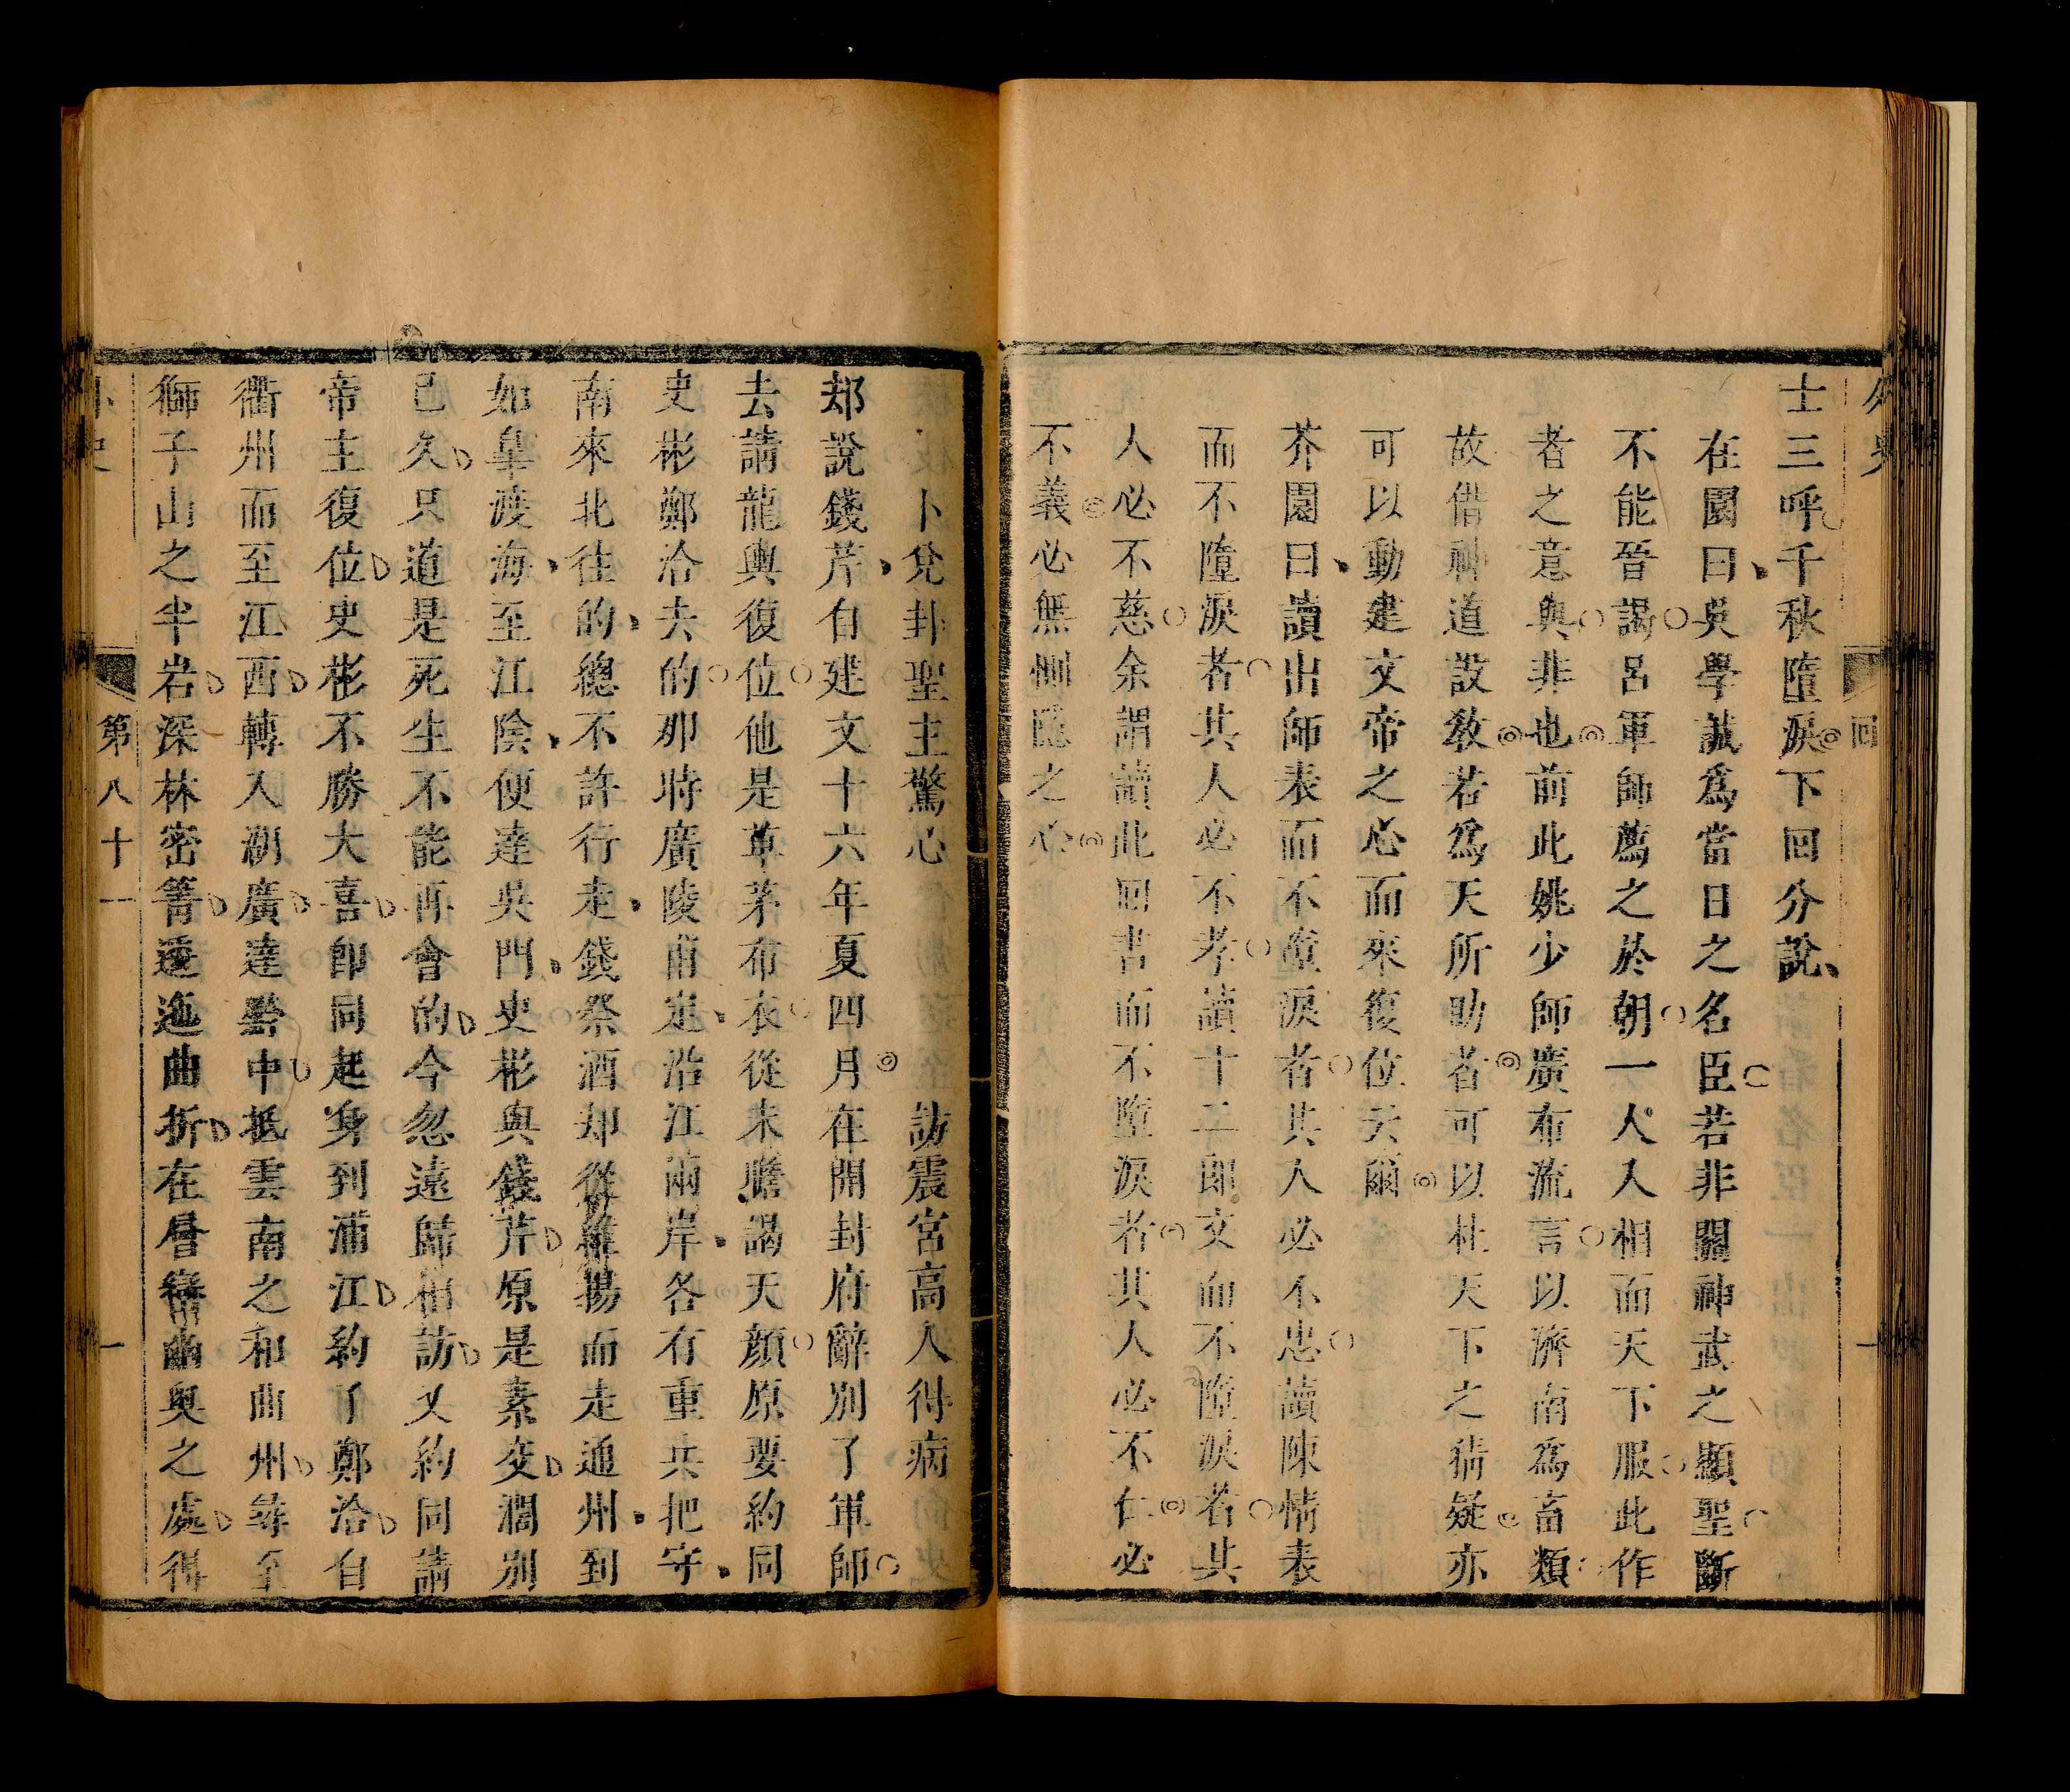 外史
回
一
士三呼千秋墮淚下回分說
在園曰吳學誠爲當日之名臣若非關神武之顯聖斷
不能晉謁呂軍師薦之於朝一人入相而天下服此作
者之意與非也前此姚少師廣布流言以濟南爲畜類
故借神道設教若爲天所助者可以杜天下之猜疑亦
可以動建文帝之心而來復位云爾
芥園曰讀出師表而不墮淚者其人必不忠讀陳情表
而不墮淚者其人必不孝讀十二郎文而不墮淚者其
人必不慈余謂讀此回書而不墮淚者其人必不仁必
不義必無惻隱之心
卜兌卦聖主驚心 訪震宮高人得病
却說錢芹自建文十六年夏四月在開封府辭別了軍師
去請龍輿復位他是草茅布衣從未瞻謁天顏原要約同
史彬鄭洽去的那時廣陵甫定沿江兩岸各有重兵把守
南來北往的總不許行走錢祭酒却從維揚而走通州到
如臯渡海至江陰便達吳門史彬與錢芹原是素交濶別
已久只道是死生不能再會的今忽遠歸相訪又約同請
帝主復位史彬不勝大喜卽同起身到浦江約了鄭洽自
衢州而至江西轉入湖廣達黔中抵雲南之和曲州等至
獅子山之半岩深林密箐逶迤曲折在層巒幽奧之處得
外史
第八十一
一